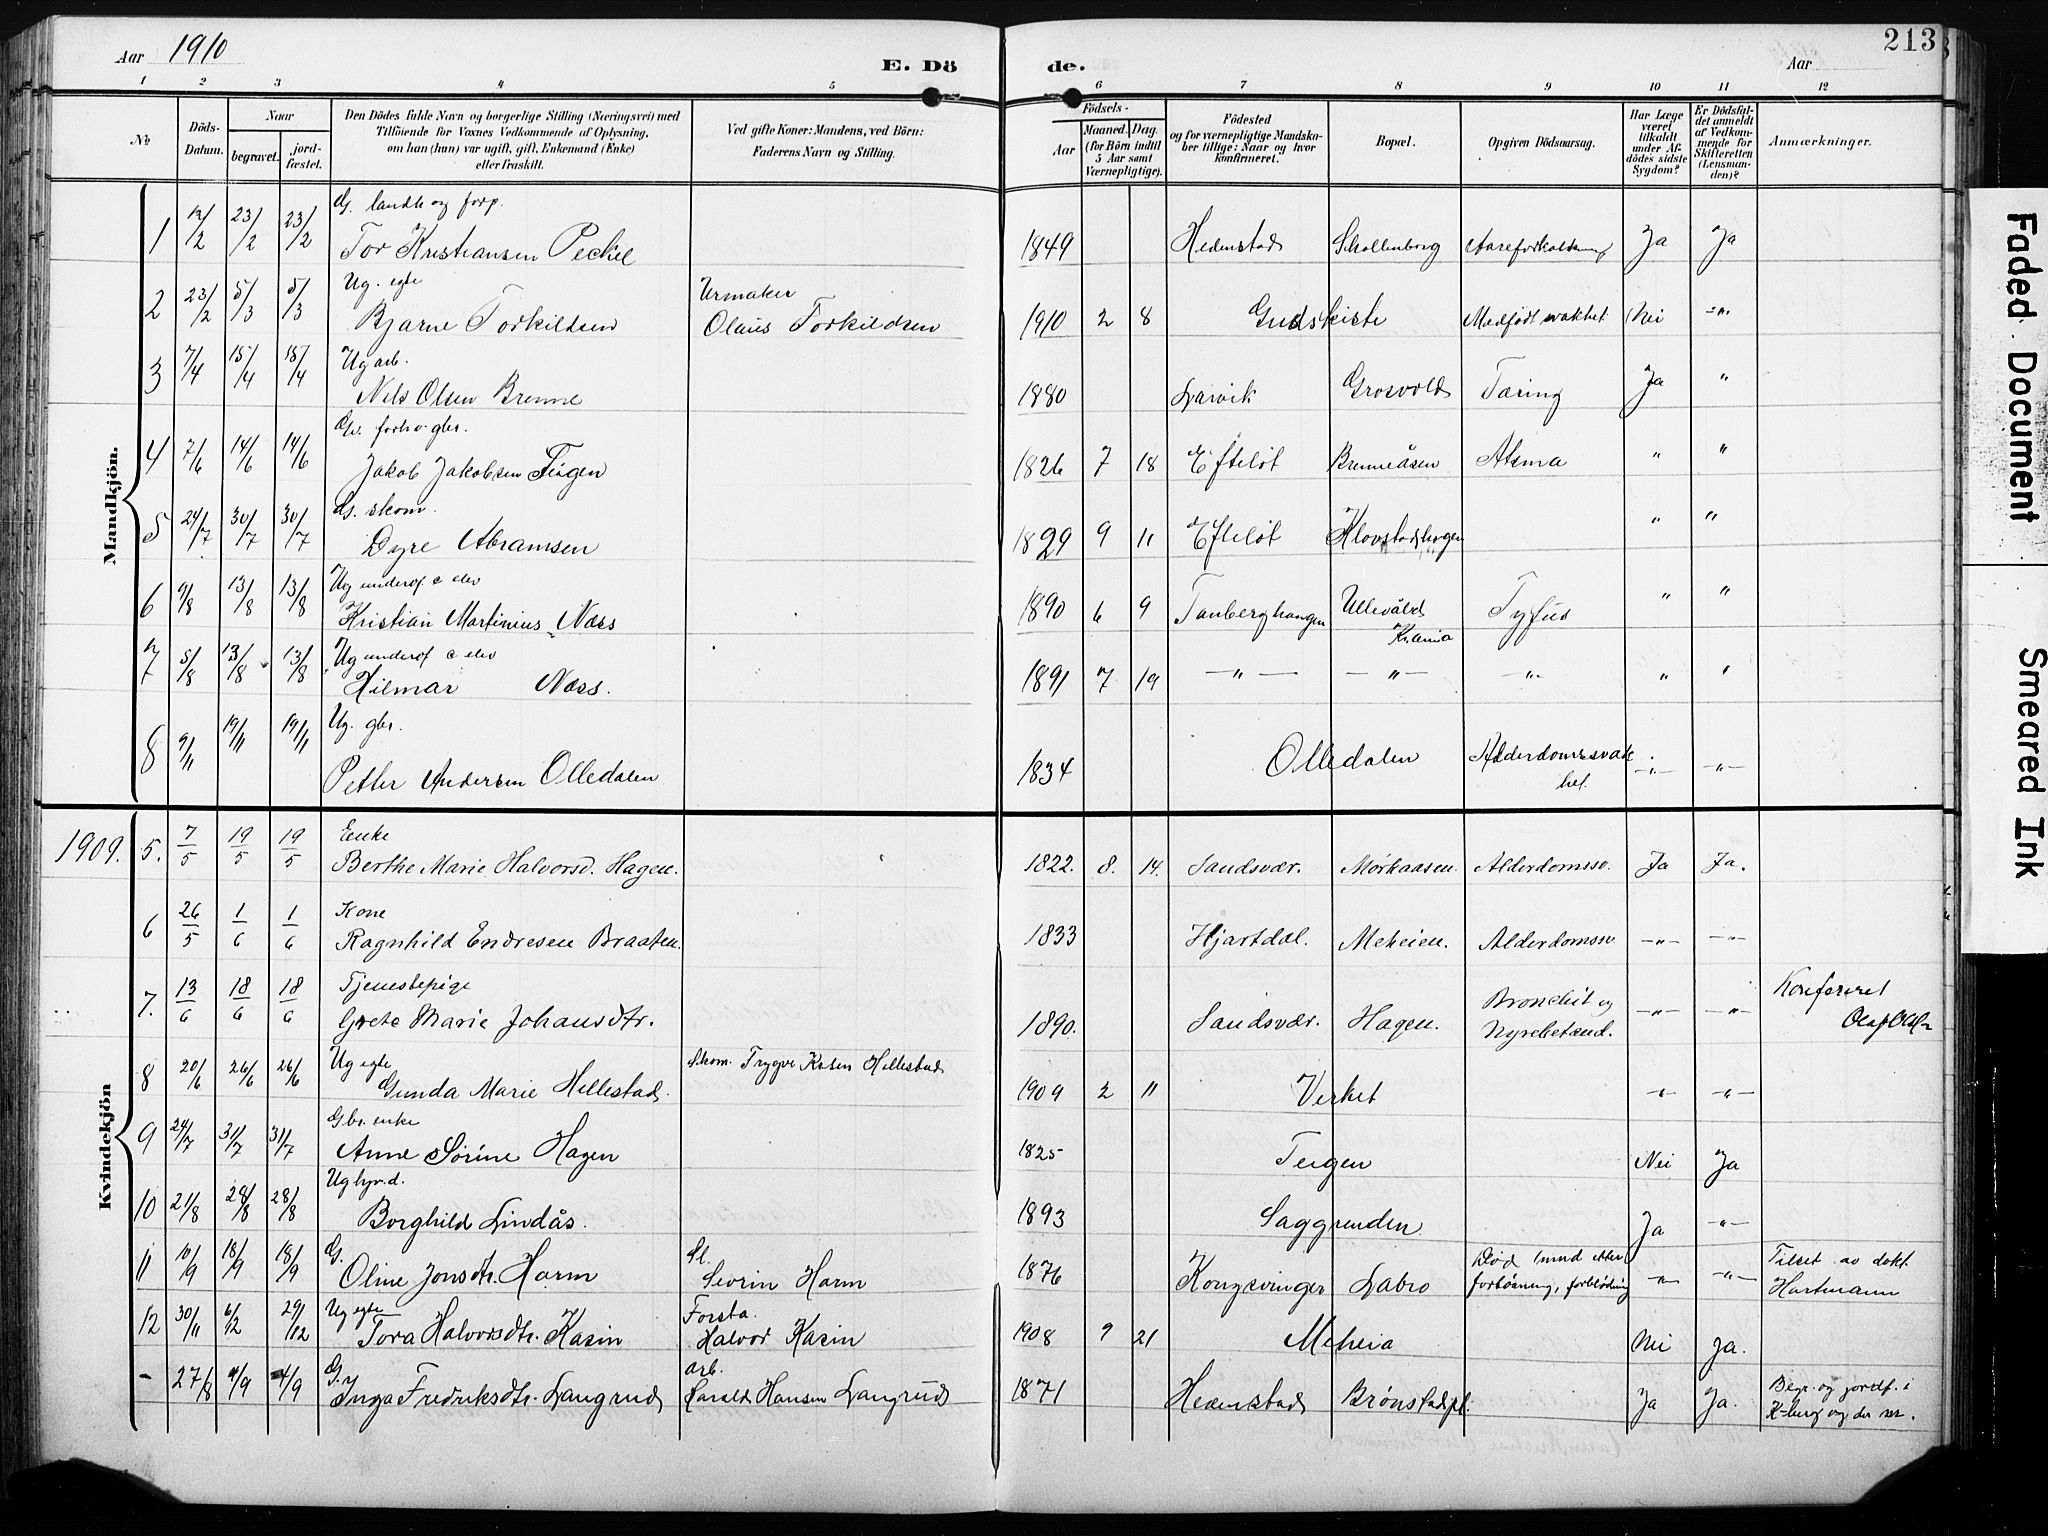 Aar 1910
E. Döde.
Aar
213
1 2 3 4 5 6 7 8 9 10 11 12
No
Döds-Datum.
Naar
begravet.
jordfæstet.
Den Dödes fulde Navn og borgerlige Stilling (Næringsvei) med
Tilföiende for Voxnes Vedkommende af Oplysning,
om han (hun) var ugift, gift, Enkemand (Enke)
eller fraskilt.
Ved gifte Koner: Mandens, ved Börn:
Faderens Navn og Stilling.
Födsels-
Aar
Maaned. Dag.
(for Börn indtil
5 Aar samt
Værnepligtige).
Födested
og for værnepligtige Mandska-
ber tillige: Naar og hvor
konfirmeret.
Bopæl.
Opgiven Dödsaarsag.
Har Læge
været
tilkaldt
under Af-
dödes sidste
Sygdom?
Er Dödsfal-
det anmeldt
af Vedkom-
mende for
Skifteretten
(Lensman-
den)?
Anmærkninger.
Mandkjön.
G. landh og forp.
1 12/2 23/2 23/2 Tor Kristiansen Peckel 1849 Hedenstad Skollenborg Aareforkalkning Ja Ja
Ug. egte Urmaker
2 23/2 5/3 5/3 Bjarne Torkildsen Olaus Torkildsen 1910 2 8 Gudskiste Medfödt svakhet Nei -"-
Ug arb.
3 7/4 15/4 15/4 Nils Olsen Brenne 1880 Larvik Grosvold Tæring Ja "
forhv. gbr.
4 7/6 14/6 14/6 Jakob Jakobsen Teigen 1826 7 18 Efteløt Brenneåsen Atsma " "
skom.
5 24/7 30/7 30/7 Dyre Abramsen 1829 9 11 Efteløt Klovstadhagen " "
Ug underof. c elev
6 9/8 13/8 13/8 Kristian Martinius Næss 1890 6 9 Tanberghaugen Ullevåld Kr.ania Tyfus " "
Ug underof c elev
7 5/8 13/8 13/8 Hilmar Næss. 1891 7 19 -"- -"- -"- " "
Ug. gbr.
8 9/11 19/11 19/11 Petter Andersen Olledalen 1834 Olledalen Alderdomssvakhet. -"- -"-
Kvindekjön
1909.
Enke
5. 7/5 19/5 19/5 Berthe Marie Halvorsd. Hagen. 1822. 8. 14. Sandsvær. Mørkaasen. Alderdomssv. Ja Ja.
Kone
6 26/5 1/6 1/6 Ragnhild Endresen Braaten. 1833 Hjartdal. Meheien. Alderdomssv -"- -"-
Tjenestepige
7. 13/6 18/6 18/6 Grete Marie Johansdtr. 1890. Sandsvær. Hagen. Bronchit og Nyrebetænd. -"- -"- Konfereret
Ug egte
8 20/6 26/6 26/6 Gunda Marie Hellestad. Skom. Trygve Hellestad 1909 2 11 Verket -"- -"-
Gbr. enke
9 24/7 31/7 31/7 Anne Sørine Hagen 1825 Teigen Nei Ja
Ug
10 21/8 28/8 28/8 Borghild Lindås. 1893 Saggrenden Ja -"-
G.
11 10/9 18/9 18/9 Oline Jonsdtr. Harm Sl. Sevrin Harm 1876 Kongsvinger Labro Død 1 mnd efter forløsning, forblødning -"- -"- Tilset av dokt. Hartmann
Ug egte
12 30/11 6/12 29/12 Tora Halvorsdtr. Kasin Forsta. Halvor Kasin 1908 9 21 Meheia Nei Ja.
G.
- 27/8 4/9 4/9 Inga Fredriksdtr. Langrud arb. Harald Hansen Langrud 1871 Hedenstad Brønstadpl. Ja Ja. Begr. og jordf. i K-berg og der
Faded Document
Smeared Ink